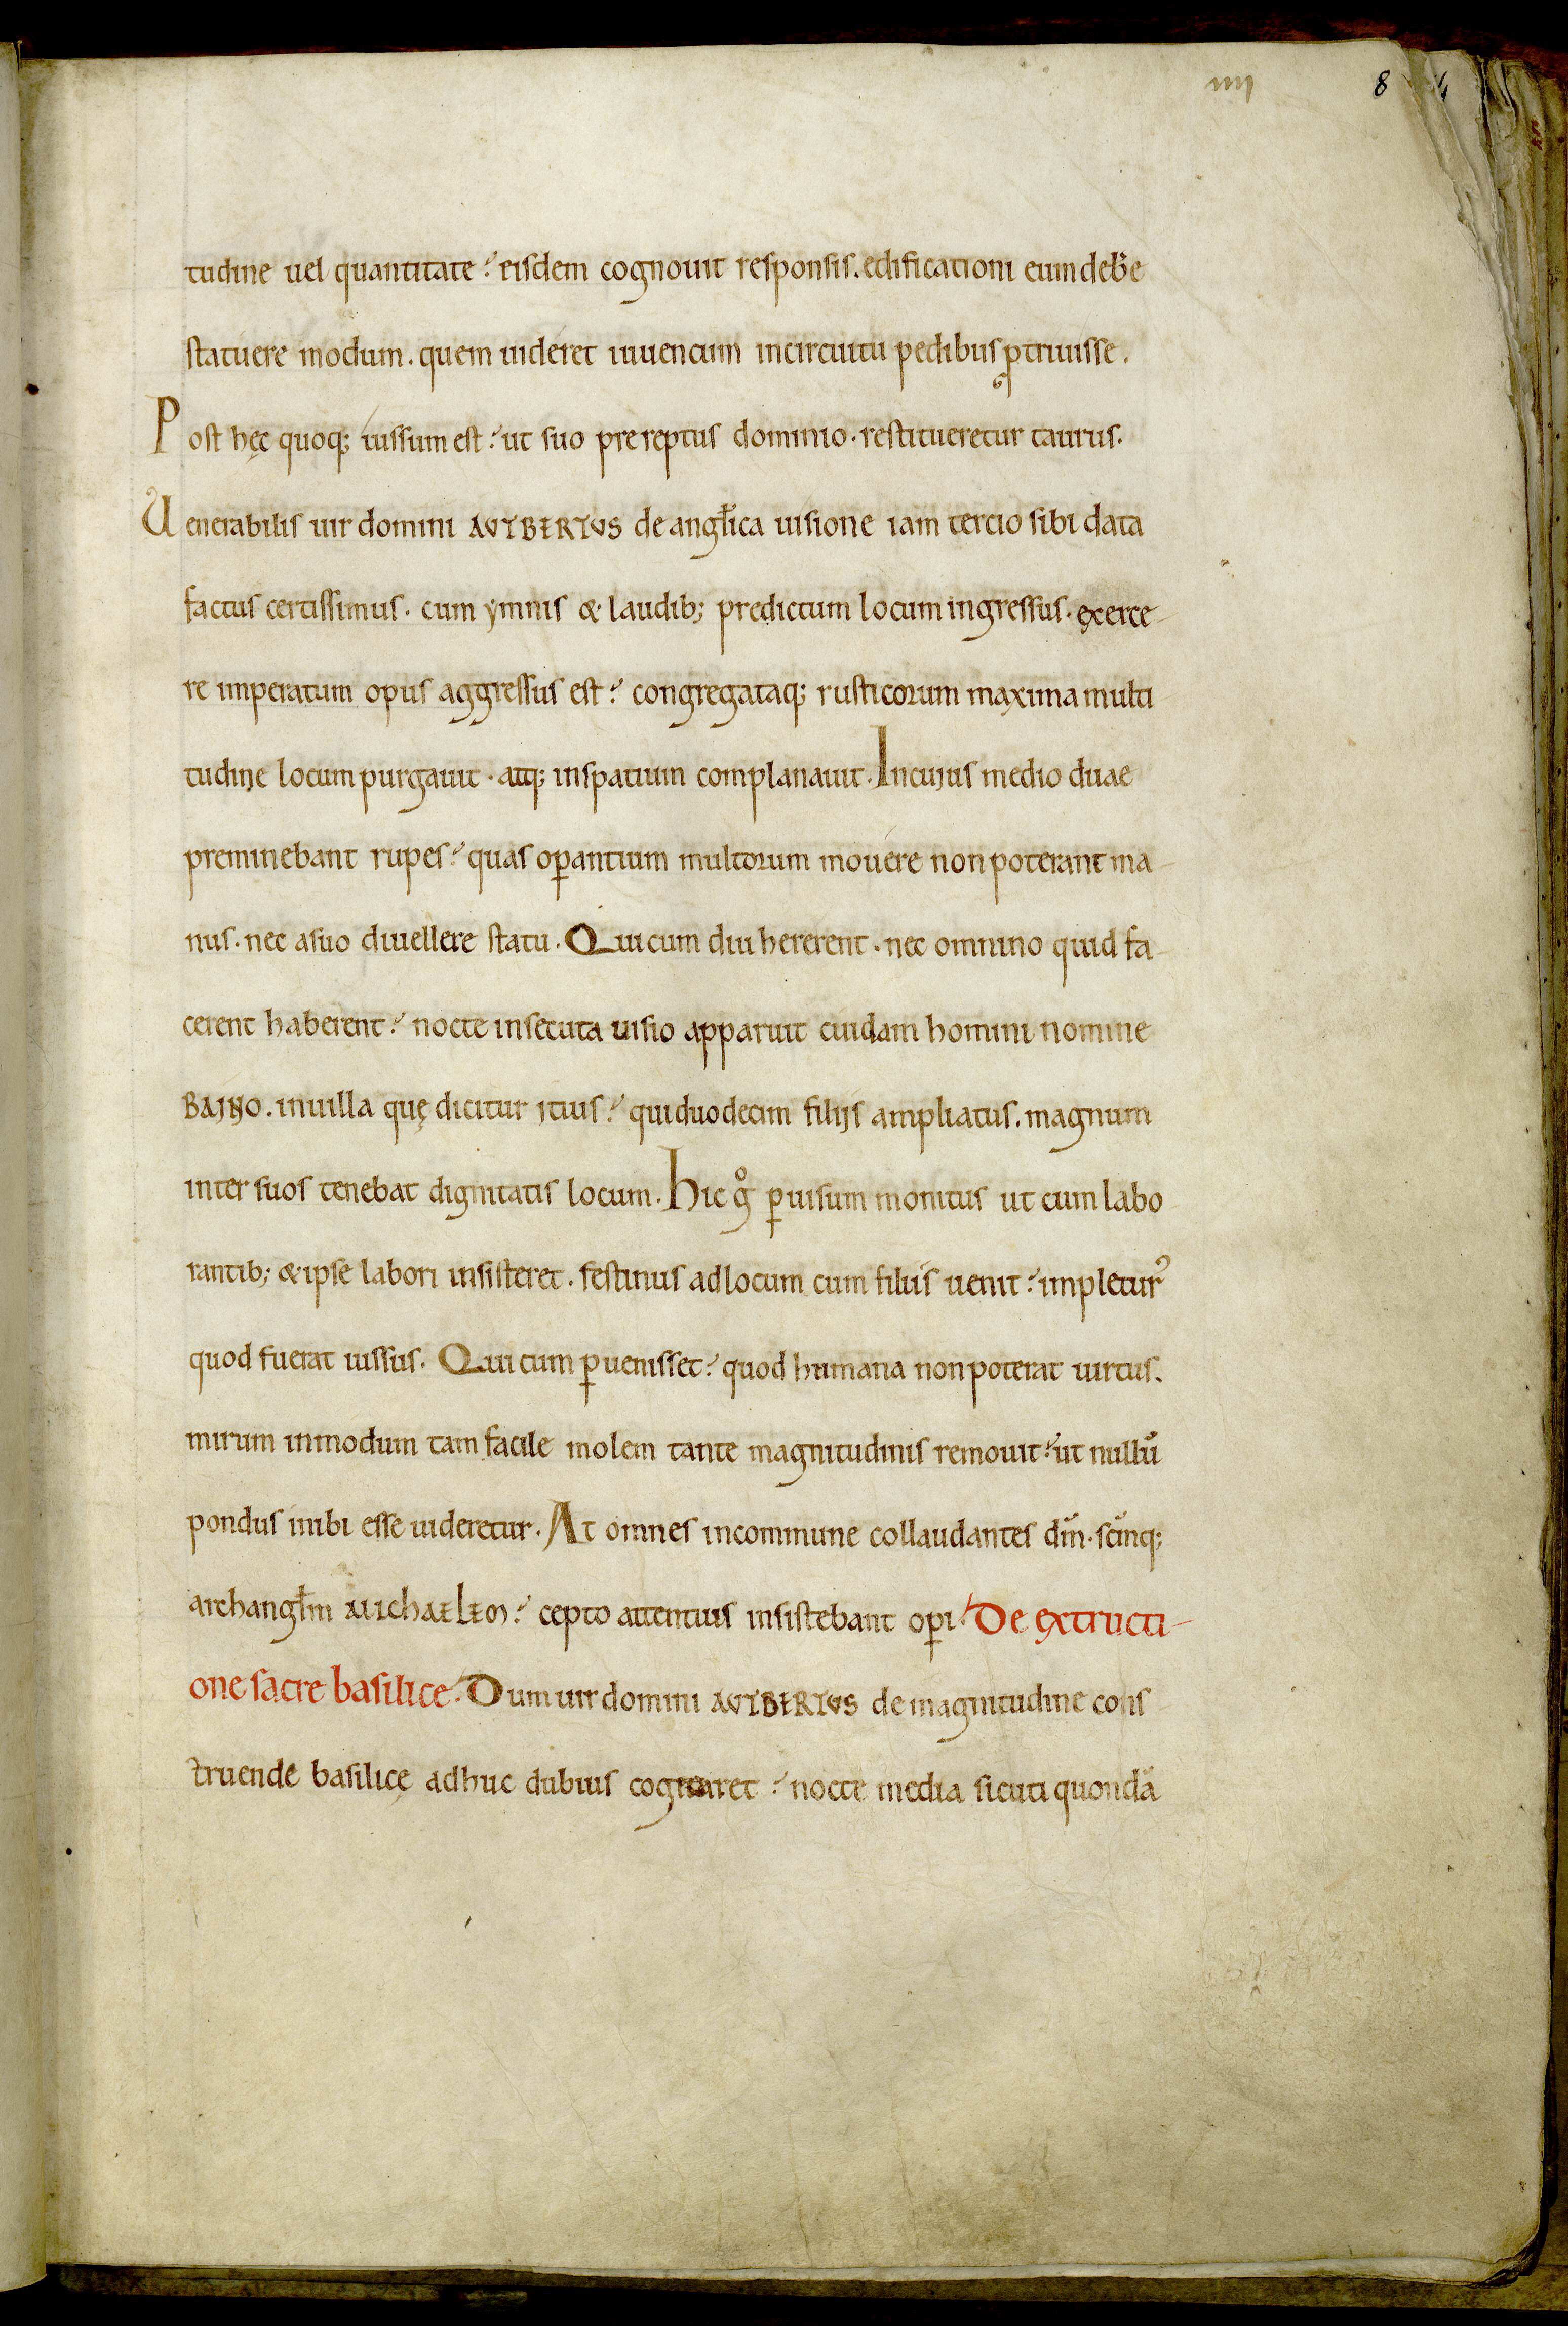 iiii 8 4
tudine uel quantitate? eisdem cognouit responsis. edificationi eum deb̅e
statuere modum. quem uideret iuuencum incircuitu pedibus ꝓtriuisse.
Post hęc quoq; iussum est? ut suo prereptus dominio. restitueretur taurus.
Uenerabilis uir domini AUTBERTUS de angl̅ica uisione iam tercio sibi data
factus certissimus. cum ymnis & laudib; predictum locum ingressus. exerce-
re imperatum opus aggressus est? congregataq; rusticorum maxima multi
tudine locum purgauit. atq; inspatium complanauit. Incuius medio duae
preminebant rupes? quas oꝑantium multorum mouere non poterant ma-
nus. nec asuo diuellere statu. Qui cum diu hererent. nec omnino quid fa-
cerent haberent? nocte insecuta uisio apparuit cuidam homini nomine
BAINO. inuilla quę dicitur itius? qui duodecim filiis ampliatus. magnum
inter suos tenebat dignitatis locum. Hic gͦ ꝑuisum monitus ut cum labo
rantib; & ipse labori insisteret. festinus adlocum cum filiis uenit? impletur᾽
quod fuerat iussus. Qui cum ꝑuenisset? quod humana non poterat uirtus.
mirum inmodum tam facile molem tante magnitudinis remouit? ut nullū
pondus inibi esse uideretur. At omnes incommune collaudantes dm̅. scm̅q;
archangl̅m MICHAELEM? cepto attentius insistebant oꝑi. De extructi-
one sacre basilice. Dum uir domini AUTBERTUS de magnitudine cons
truende basilicę adhuc dubius cogitaret? nocte media sicuti quondā